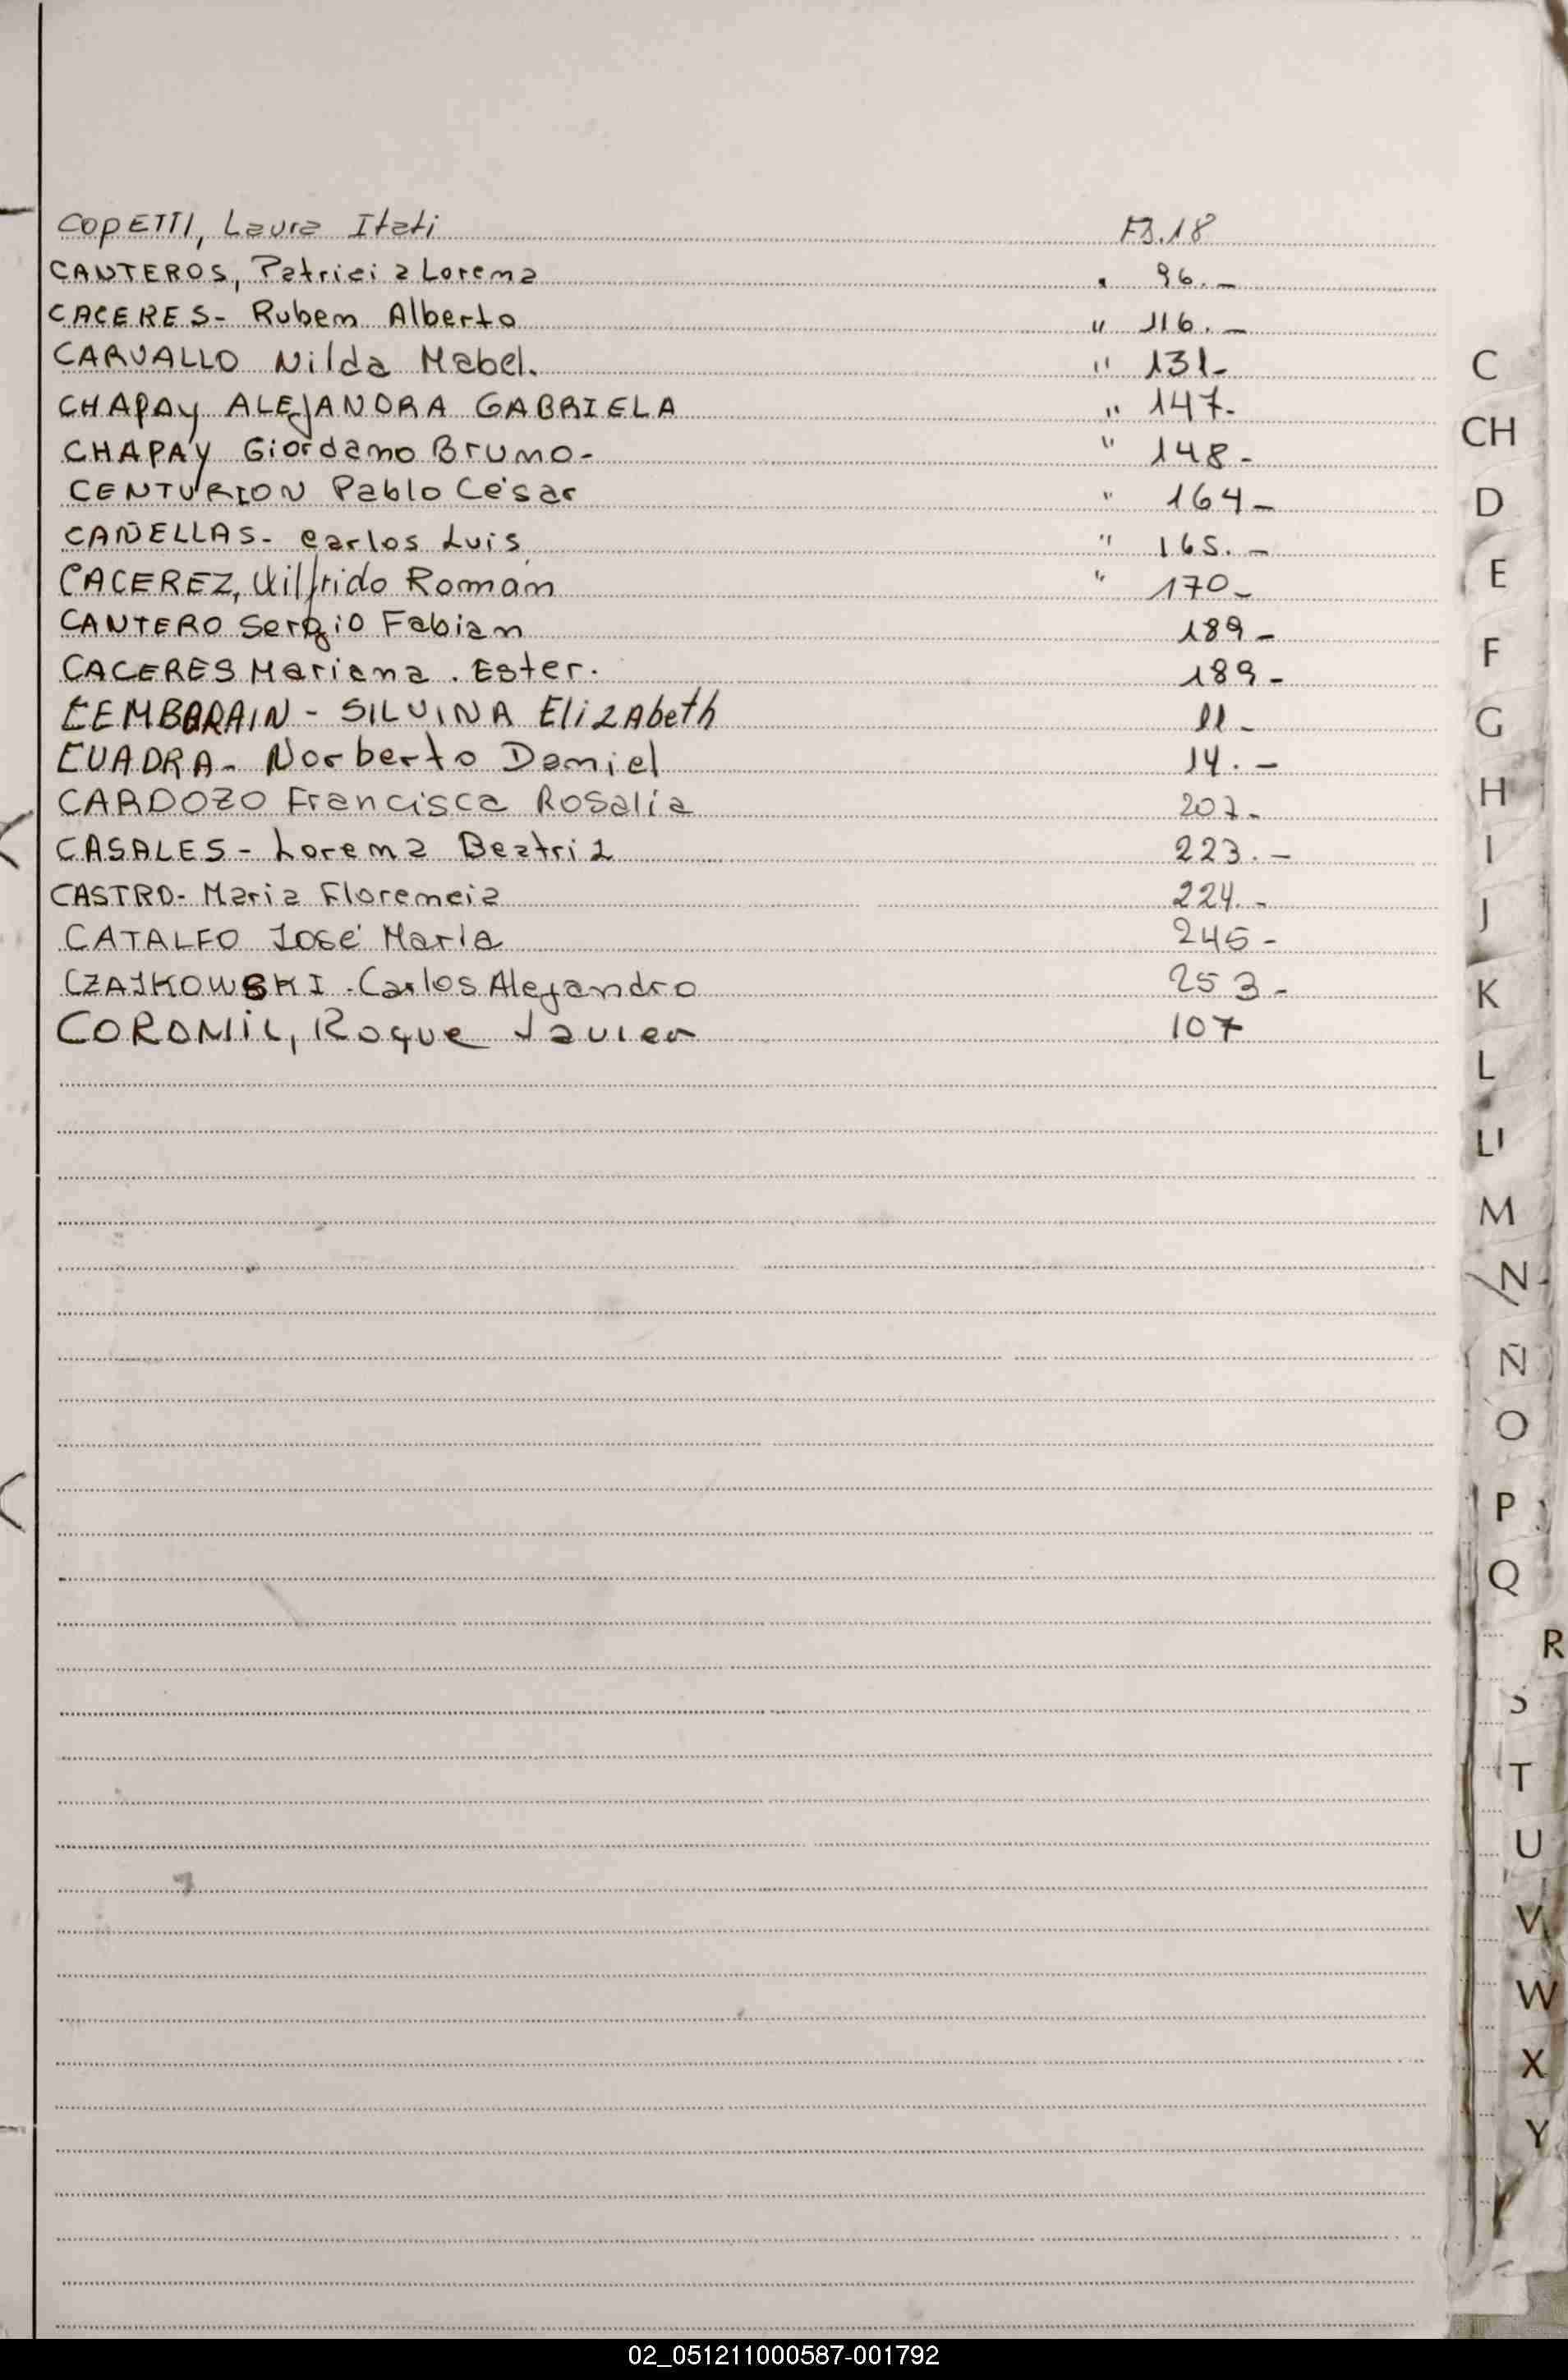 COPETTI, Laura Itati Fs.18
CANTEROS, Patricia Lorena " 96.-
CACERES- Ruben Alberto " 116.-
CARVALLO Nilda Mabel. " 131-
CHAPAY ALEJANDRA GABRIELA " 147-
CHAPAY Giordano Bruno- " 148-
CENTURION Pablo César " 164-
CAÑELLAS- Carlos Luis " 165.-
CACEREZ, Wilfrido Román " 170-
CANTERO Sergio Fabian 189-
CACERES Mariana. Ester. 189-
CEMBORAIN - SILVINA ElizAbeth 11-
CUADRA- Norberto Daniel 14.-
CARDOZO Francisca Rosalía 207-
CASALES- Lorena Beatriz 223.-
CASTRO- Maria Florencia 224.-
CATALFO José María 245-
CZAJKOWSKI. Carlos Alejandro 253-
COROMIL, Roque Javier 107
C
CH
D
E
F
G
H
I
J
K
L
Ll
M
N
Ñ
O
P
Q
R
S
T
U
V
W
X
Y
02_051211000587-001792